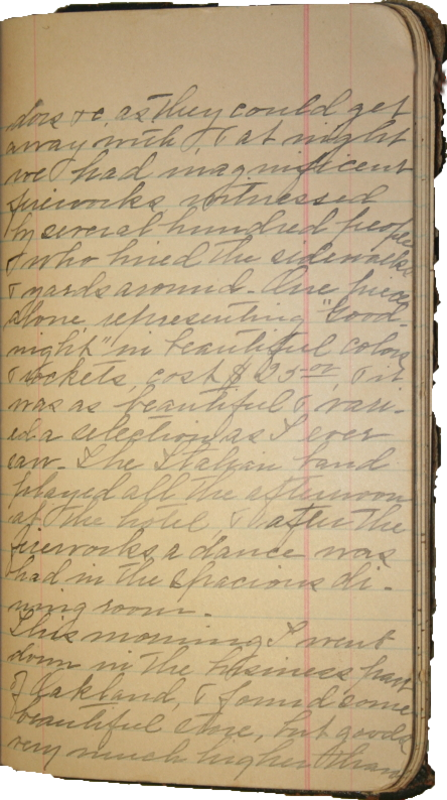 does &c, as they could get
away with, & at night
we had magnificent
fireworks witnessed
by several hundred people
who lined the sidewalks
& yards around. One piece
alone, representing "Good
night", in beautiful colors
& rockets, cost $25.00, & it
was as beautiful & vari-
ed a selection as I ever
saw. The Italian band
played all the afternoon
at the hotel, & after the
fireworks a dance was
had in the spacious di-
ning room.
This morning I went
down in the business part
of Oakland, & found some
beautiful store, but goods
very much higher than